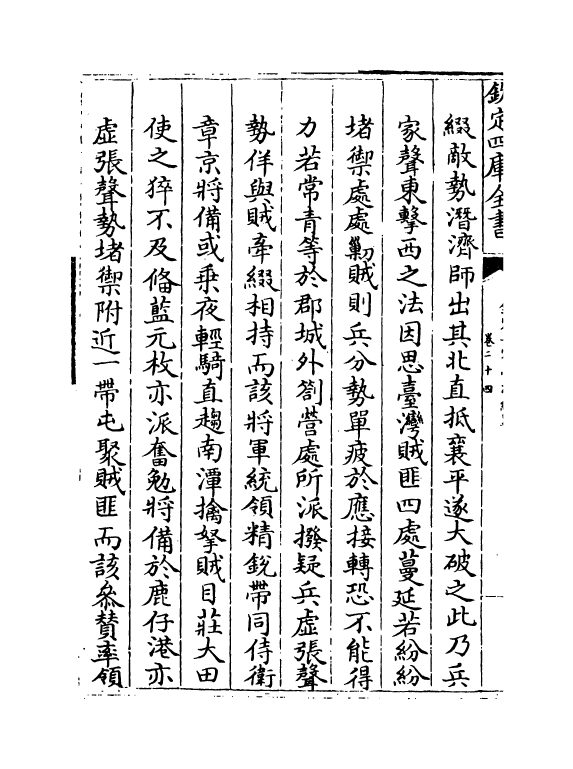 欽定四庫全書
卷二十四
綴敵勢潛濟師出其北直抵襄平遂大破之此乃兵
家聲東擊西之法因思臺灣賊匪四處蔓延若紛紛
堵禦處處勦賊則兵分勢單疲於應接轉恐不能得
力若常青等於郡城外劄營處所派撥疑兵虛張聲
勢佯與賊牽綴相持而該將軍統領精銳帶同侍衛
章京將備或乘夜輕騎直趨南潭擒拏賊目莊大田
使之猝不及備藍元枚亦派奮勉將備於鹿仔港亦
虛張聲勢堵禦附近一帶屯聚賊匪而該叅賛率領